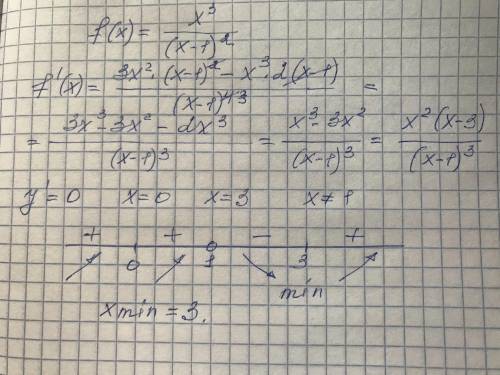 f(x) = x³/(x-1)²
f'(x) = (3x²·(x-1)² - x³·2(x-1))/(x-1)⁴³ =
= (3x³-3x²-2x³)/(x-1)³ = (x³-3x²)/(x-1)³ = (x²(x-3))/(x-1)³
y'=0 x=0 x=3 x≠1
+ + - +
0 1 3
min
xmin = 3.